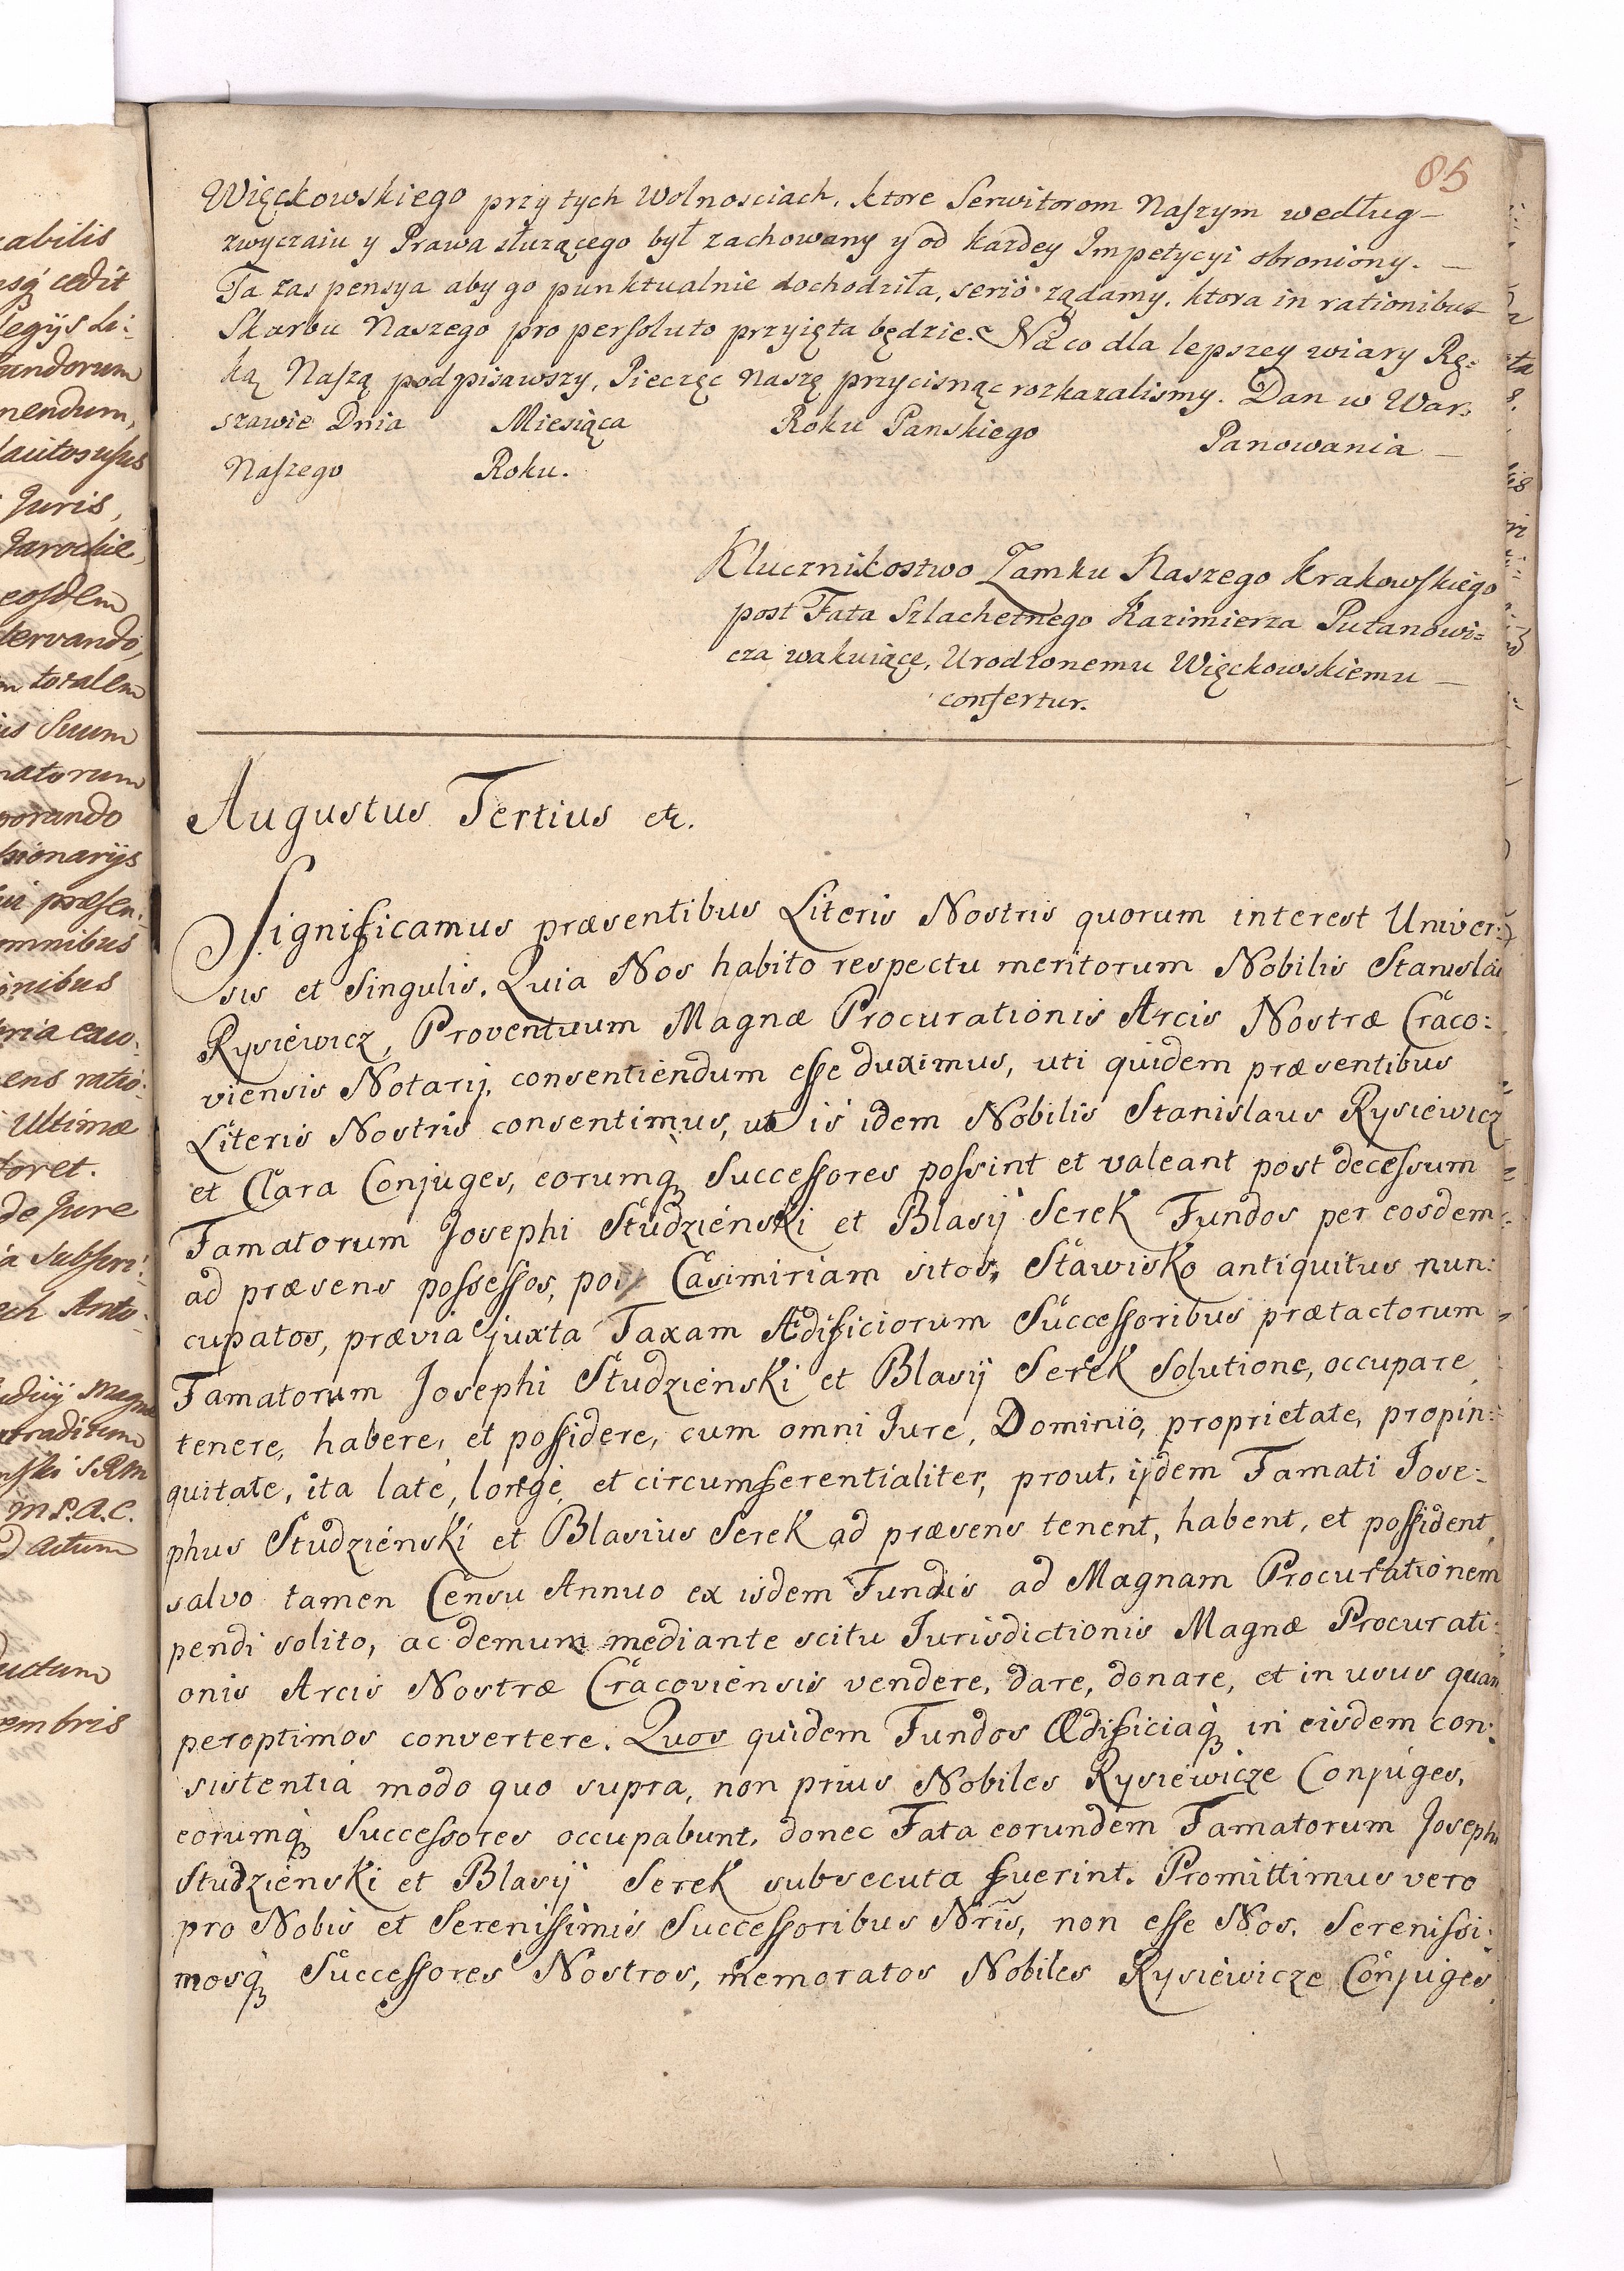 85
Więckowskiego przy tych Wolnosciach, ktore Serwitorom Naszym według
zwyczaiu y Prawa służącego był zachowany y od każdey Impetycyi obroniony.
Ta zas pensya aby go punktualnie dochodziła, serio żądamy, ktora in rationibus
Skarbu Naszego pro persoluto przyięta będzie. Na co dla lepszey wiary Rę:
ką Naszą podpisawszy, Pieczęc naszę przycisnąc rozkazalismy. Dan w War:
szawie Dnia Miesiąca Roku Panskiego Panowania
Naszego Roku.
Klucznikostwo Zamku Naszego Krakowskiego
post Fata Szlachetnego Kazimierza Putanowi=
cza wakuiące, Urodzonemu Więckowskiemu
confertur.
Augustus Tertius etc.
Significamus præsentibus Literis Nostris quorum interest Univer:
sis et Singulis. Quia Nos habito respectu meritorum Nobilis Stanislai
Rysiewicz, Proventuum Magnæ Procurationis Arcis Nostræ Craco:
viensis Notarij, consentiendum esse duximus, uti quidem præsentibus
Literis Nostris consentimus, ut is idem Nobilis Stanislaus Rysiewicz
et Clara Conjuges, eorumq Successores possint et valeant post decessum
Famatorum Josephi Studzienski et Blasij Serek Fundos per eosdem
ad præsens possessos, post Casimiriam sitos, Stawisko antiquitus nun:
cupatos, prævia juxta Taxam Ædificiorum Successoribus prætactorum
Famatorum Josephi Studzienski et Blasij Serek Solutione, occupare
tenere, habere, et possidere, cum omni Jure, Dominio, proprietate, propin:
quitate, ita late, longe, et circumferentialiter, prout, ijdem Famati Jose:
phus Studzienski et Blasius Serek ad præsens tenent, habent, et possident,
salvo tamen Censu Annuo ex iisdem Fundis ad Magnam Procurationem
pendi solito, ac demum mediante scitu Jurisdictionis Magnæ Procurati:
onis Arcis Nostræ Cracoviensis vendere, dare, donare, et in usus quam
peroptimos convertere. Quos quidem Fundos Ædificiaq in eisdem con:
sistentia modo quo supra, non prius Nobiles Rysiewicze Conjuges,
eorumq Successores occupabunt, donec Fata eorundem Famatorum Josephi
Studzienski et Blasij Serek subsecuta fuerint. Promittimus vero
pro Nobis et Serenissimis Successoribus Nris, non esse Nos, Serenissi:
mosq Successores Nostros, memoratos Nobiles Rysiewicze Conjuges